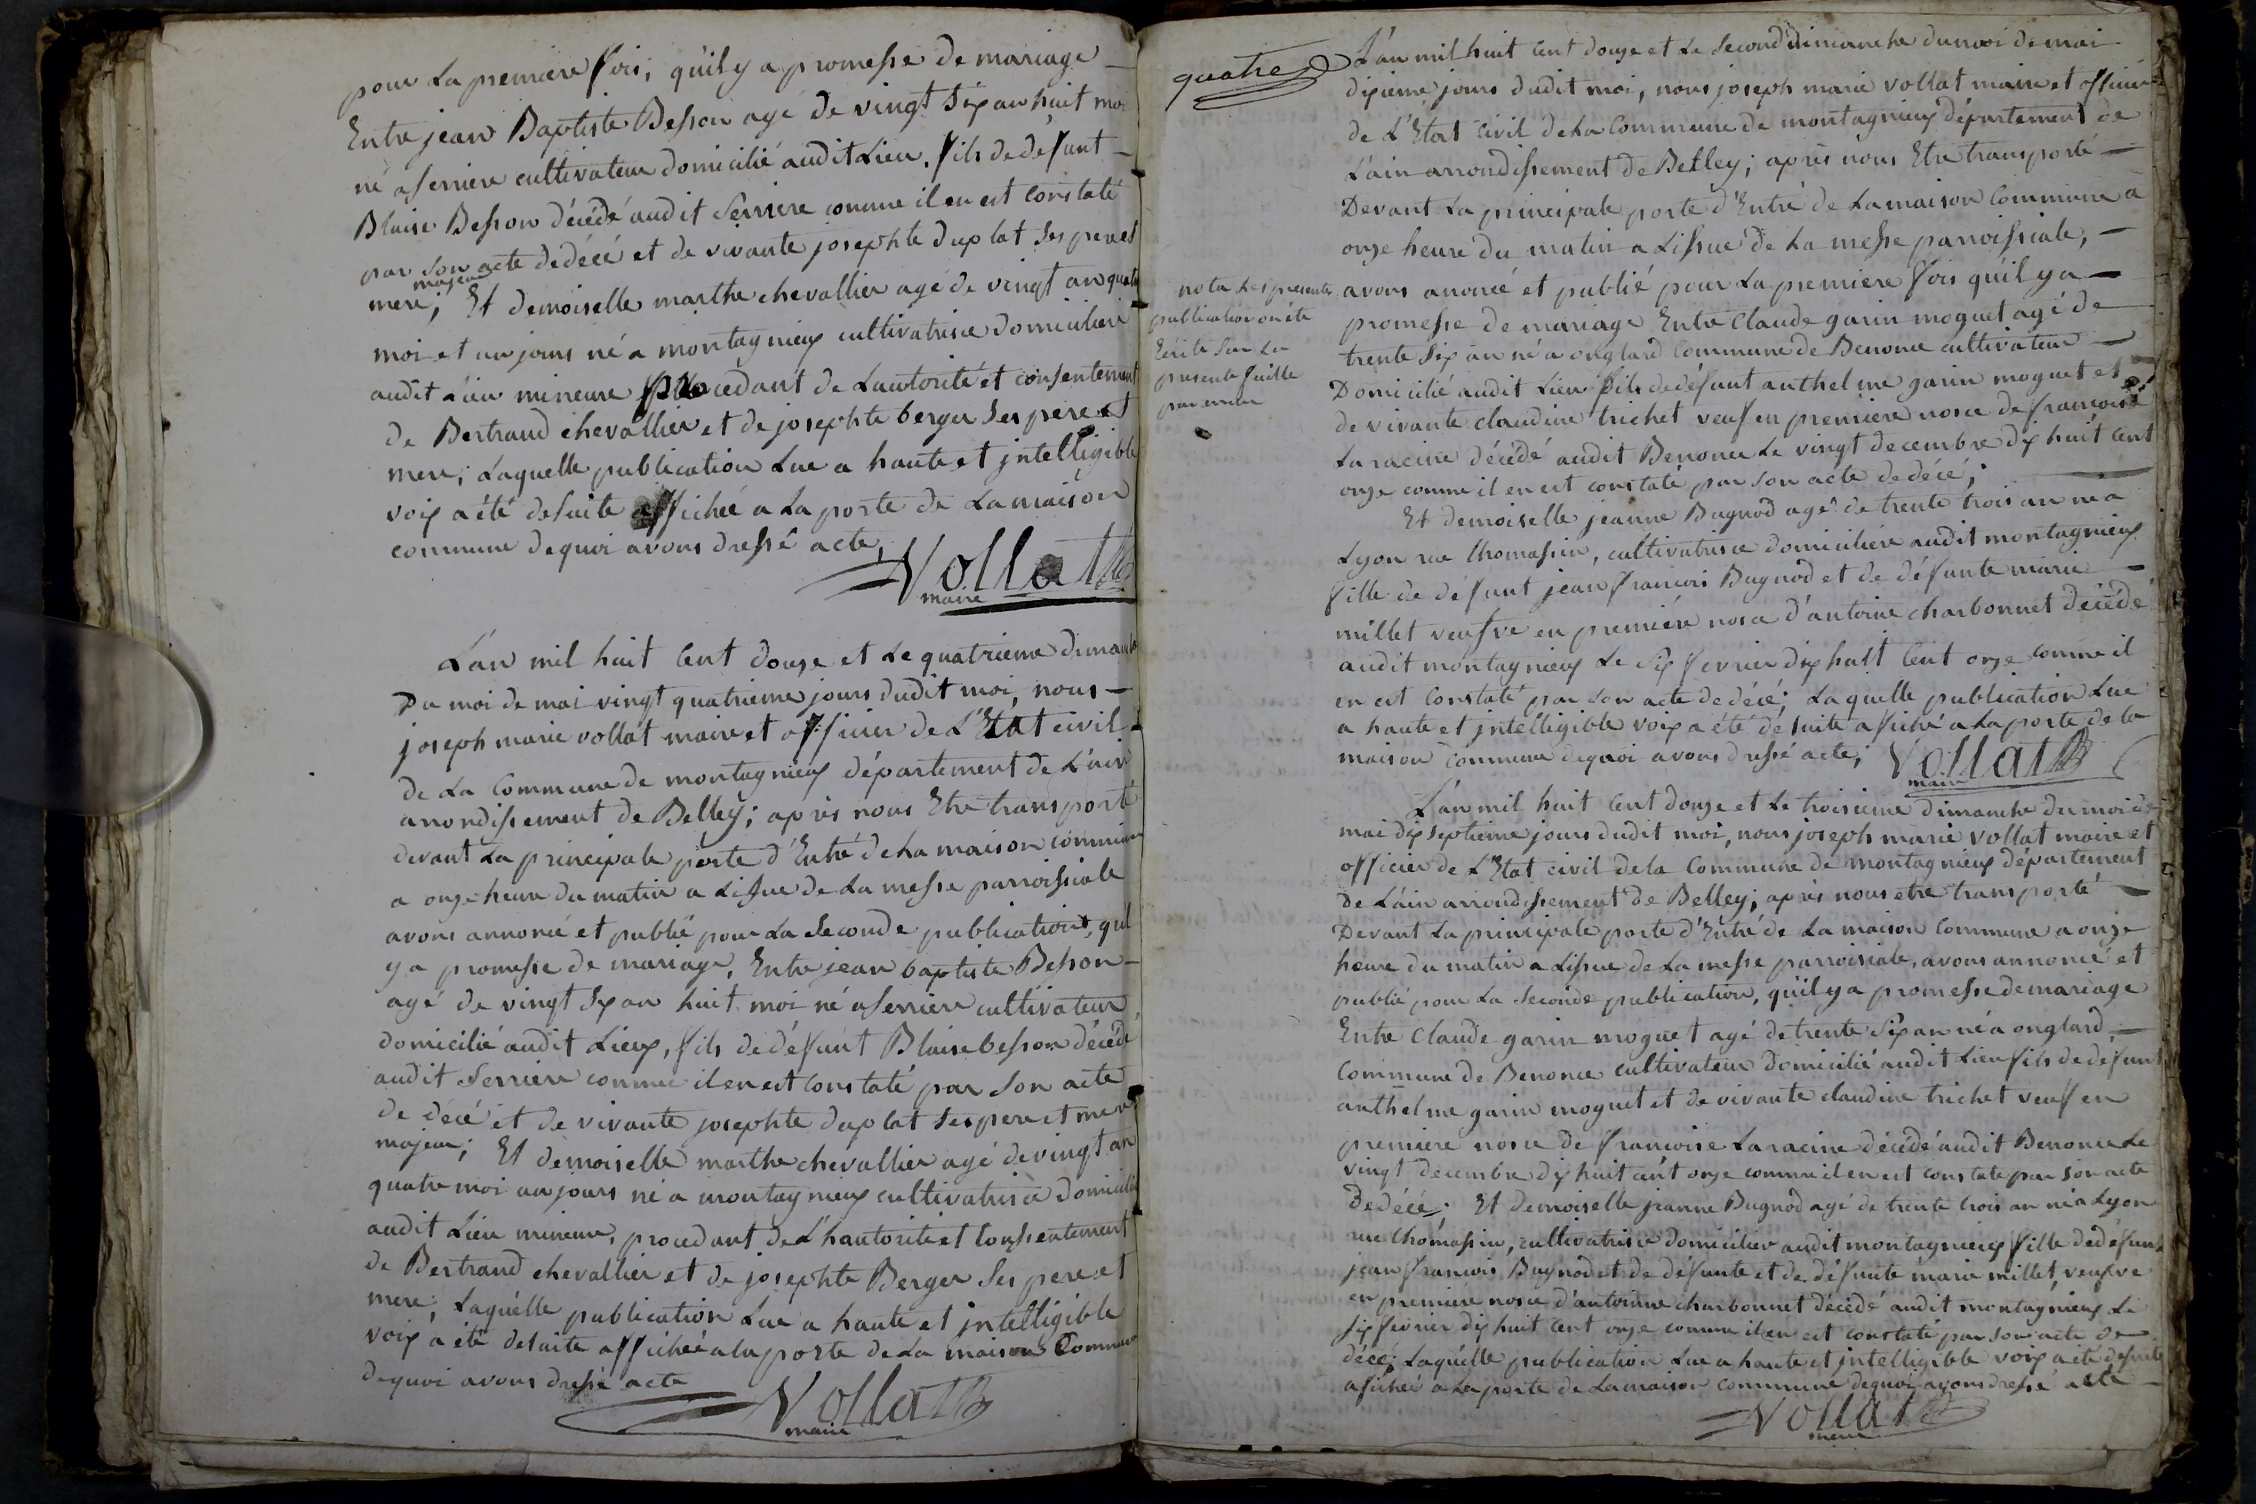 pour La premiere fois, qu'il y a promesse de mariage
Entre jean Baptiste Besson agé de vingt six an huit moi
né a serriere cultivateur domicilié audit Lieu, fils de defunt
Blaise Besson décédé audit Serriere comme il en est constaté
par son acte dedécé et de vivante josephte duplat Ses peres
majeur
mere; Et demoiselle marthe chevallier agé de vingt an quatre
moi et un jours né a montagnieux cultivatrice domiciliere
audit Lieu mineure procedant de Lautorité et consentement
de Bertrand chevallier et de josephte berger Ses pere et
mere; Laquelle publication Lue a haute et jntelligible
voix a été desuite affichée a La porte de La maison
commune dequoi avons dressé acte,
Vollat
maire
L'an mil huit Cent douze et Le quatrieme dimanche
Du moi de mai vingt quatrieme jours dudit moi, nous
joseph marie vollat maire et officier de L'Etat civil
de La Commune de montagnieux département de L'ain
arrondissement de Belley; après nous Etre transporté
devant La principale porte d'Entré de La maison commune
a onze heure du matin a Lissue de La messe parroissiale
avons annoncé et publié pour La Seconde publication, qu'il
y a promesse de mariage, Entre jean baptiste Besson
agé de vingt Six an huit moi né a serriere cultivateur
domicilié audit Lieux, fils de défunt Blaise besson décédé
audit Serriere comme il en est constaté par Son acte
de décé et de vivante josephte duplat Ses pere et mere
majeur; Et demoiselle marthe chevallier agé de vingt an
quatre moi un jours né a montagnieux cultivatrice domicilié
audit Lieu mineure, procedant de L'hautorité et Consentement
de Bertrand chevallier et de josephte Berger Ses pere et
mere, Laquelle publication Lue a haute et jntelligible
voix a été desuite affichée a la porte de La maison Commune
dequoi avons dressé acte
Vollat
maire
quatre
L'an mil huit Cent douze et Le Second dimanche du moi de mai
dixieme jours dudit moi, nous joseph marie vollat maire et officier
de L'Etat Civil de La Commune de montagnieux département de
L'ain arrondissement de Belley; après nous Etre transporté
Devant La principale porte d'Entré de La maison Commune a
onze heure du matin a Lissue de La messe parroissiale,
nota Les presentes
publication on été
Ecrite Sur La
presente fuille
par erreur
avons anoncé et publié pour La premiere fois qu'il y a
promesse de mariage Entre Claude garin moguet agé de
trente six an né a onglard Commune de Benonce cultivateur
Domicilié audit Lieu fils de défunt anthelme garin moguet et
de vivante claudine trichet veuf en premiere nosce de francoise
Laracine décédé audit Benonce Le vingt decembre dix huit Cent
onze comme il en est constaté par son acte dedécé;
Et demoiselle jeanne Bugnod agé de trente trois an né a
Lyon rue thomassin, cultivatrice domiciliére audit montagnieux
fille de défunt jean francois Bugnod et de défunte marie
millet veufve en premiére nosce d'antoine charbonnet décédé
audit montagnieux Le six fevrier dix huit Cent onze comme il
en est Constaté par son acte dedécé; Laquelle publication Lue
a haute et jntelligible voix a été desuite affiché a La porte de la
maison Commune dequoi avons dressé acte;
Vollat
maire
L'an mil huit Cent douze et Le troisieme dimanche du moi de
mai dix septieme jours dudit moi, nous joseph marie vollat maire et
officier de L'Etat civil de la Commune de montagnieux département
De L'ain arrondissement de Belley, après nous etre transporté
Devant La principale porte d'Entré de La maison Commune a onze
heure du matin a Lissue de La messe parroissiale, avons annoncé et
publié pour La Seconde publication, qu'il y a promesse de mariage
Entre Claude garin moguet agé de trente Six an né a onglard
Commune de Benonce cultivateur Domicilié audit Lieu fils de défunt
anthelme garin moguet et de vivante claudine trichet veuf en
premiere nosce de francoise Laracine décédé audit Benonce Le
vingt decembre dix huit cent onze comme il en est constaté par Son acte
Dedécé; Et Demoiselle jeanne Bugnod agé de trente trois an né a Lyon
rue thomassin, cultivatrice domicilier audit montagnieux fille dedéfunt
jean francois Bugnod et de défunte et de défunte marie millet, veufve
en premiere nosce d'antoinne charbonnet décédé audit montagnieux Le
six fevrier dix huit Cent onze comme il en est constaté par Son acte de
décé; Laquelle publication Lue a haute et jntelligible voix a été desuite
afichée a La porte de La maison Commune dequoi avons dressé acte
Vollat
maire